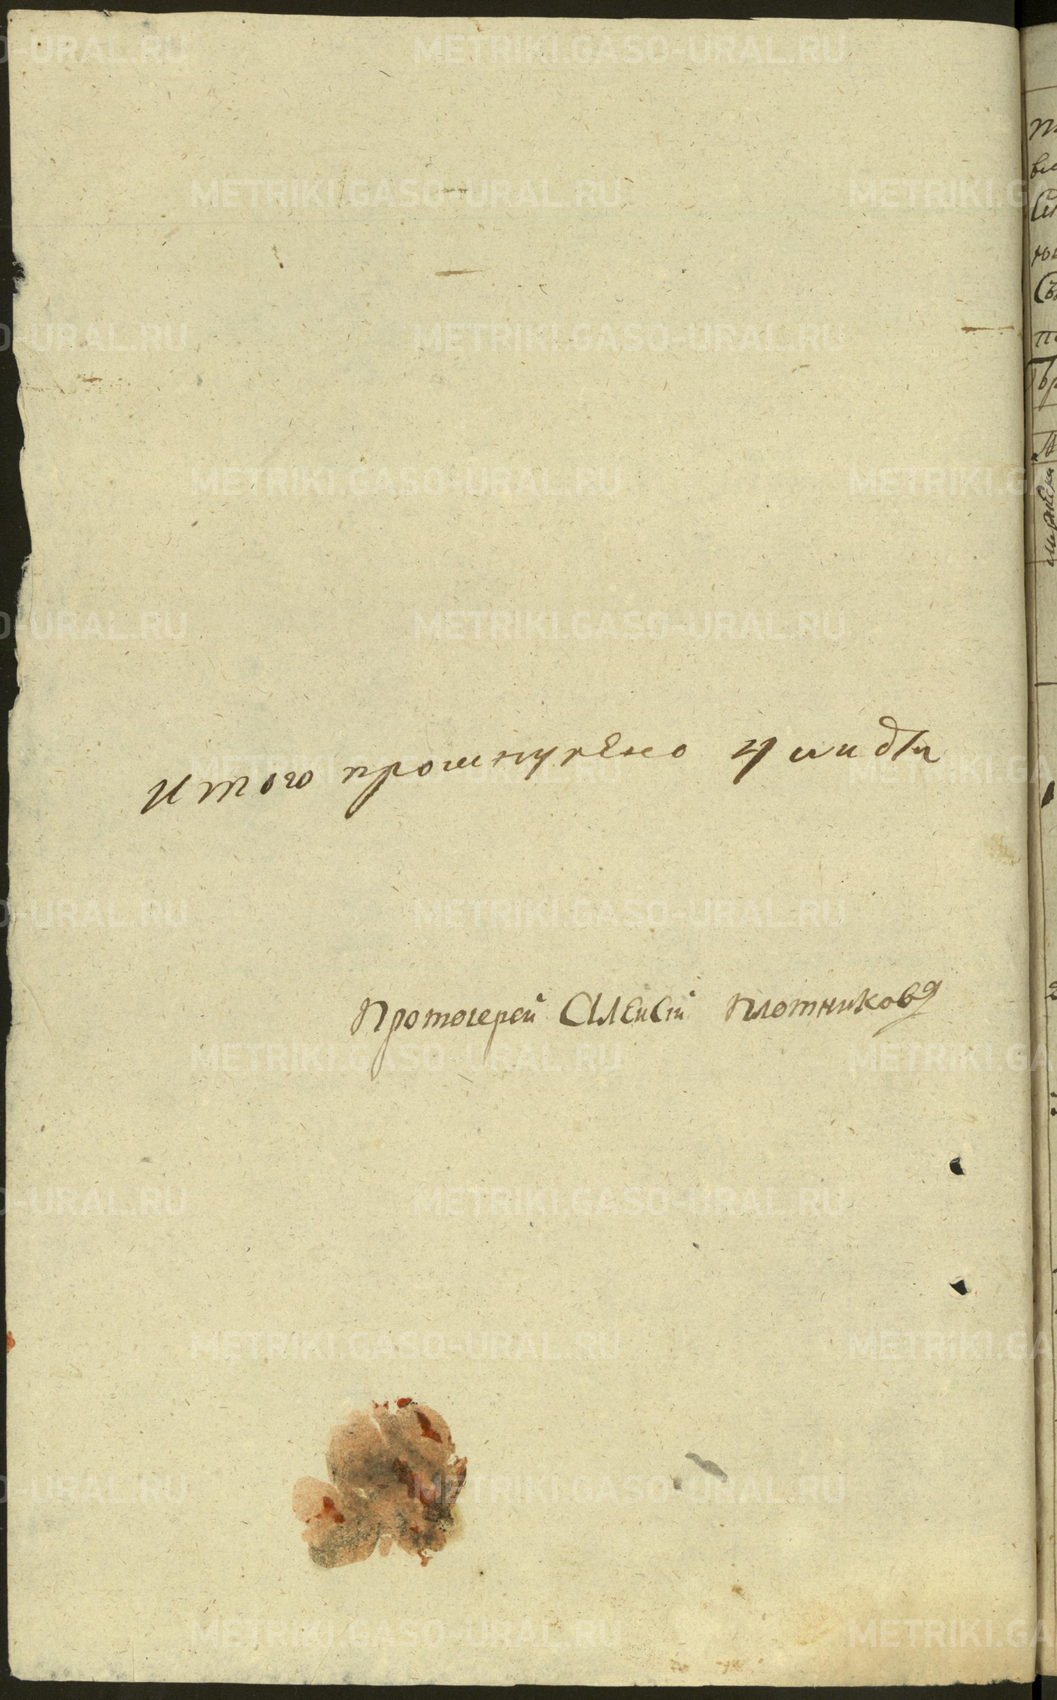 METRIKI.GASO-URAL.RU
Итого прошнурено
Протоиерей Алексiй Плотниковъ